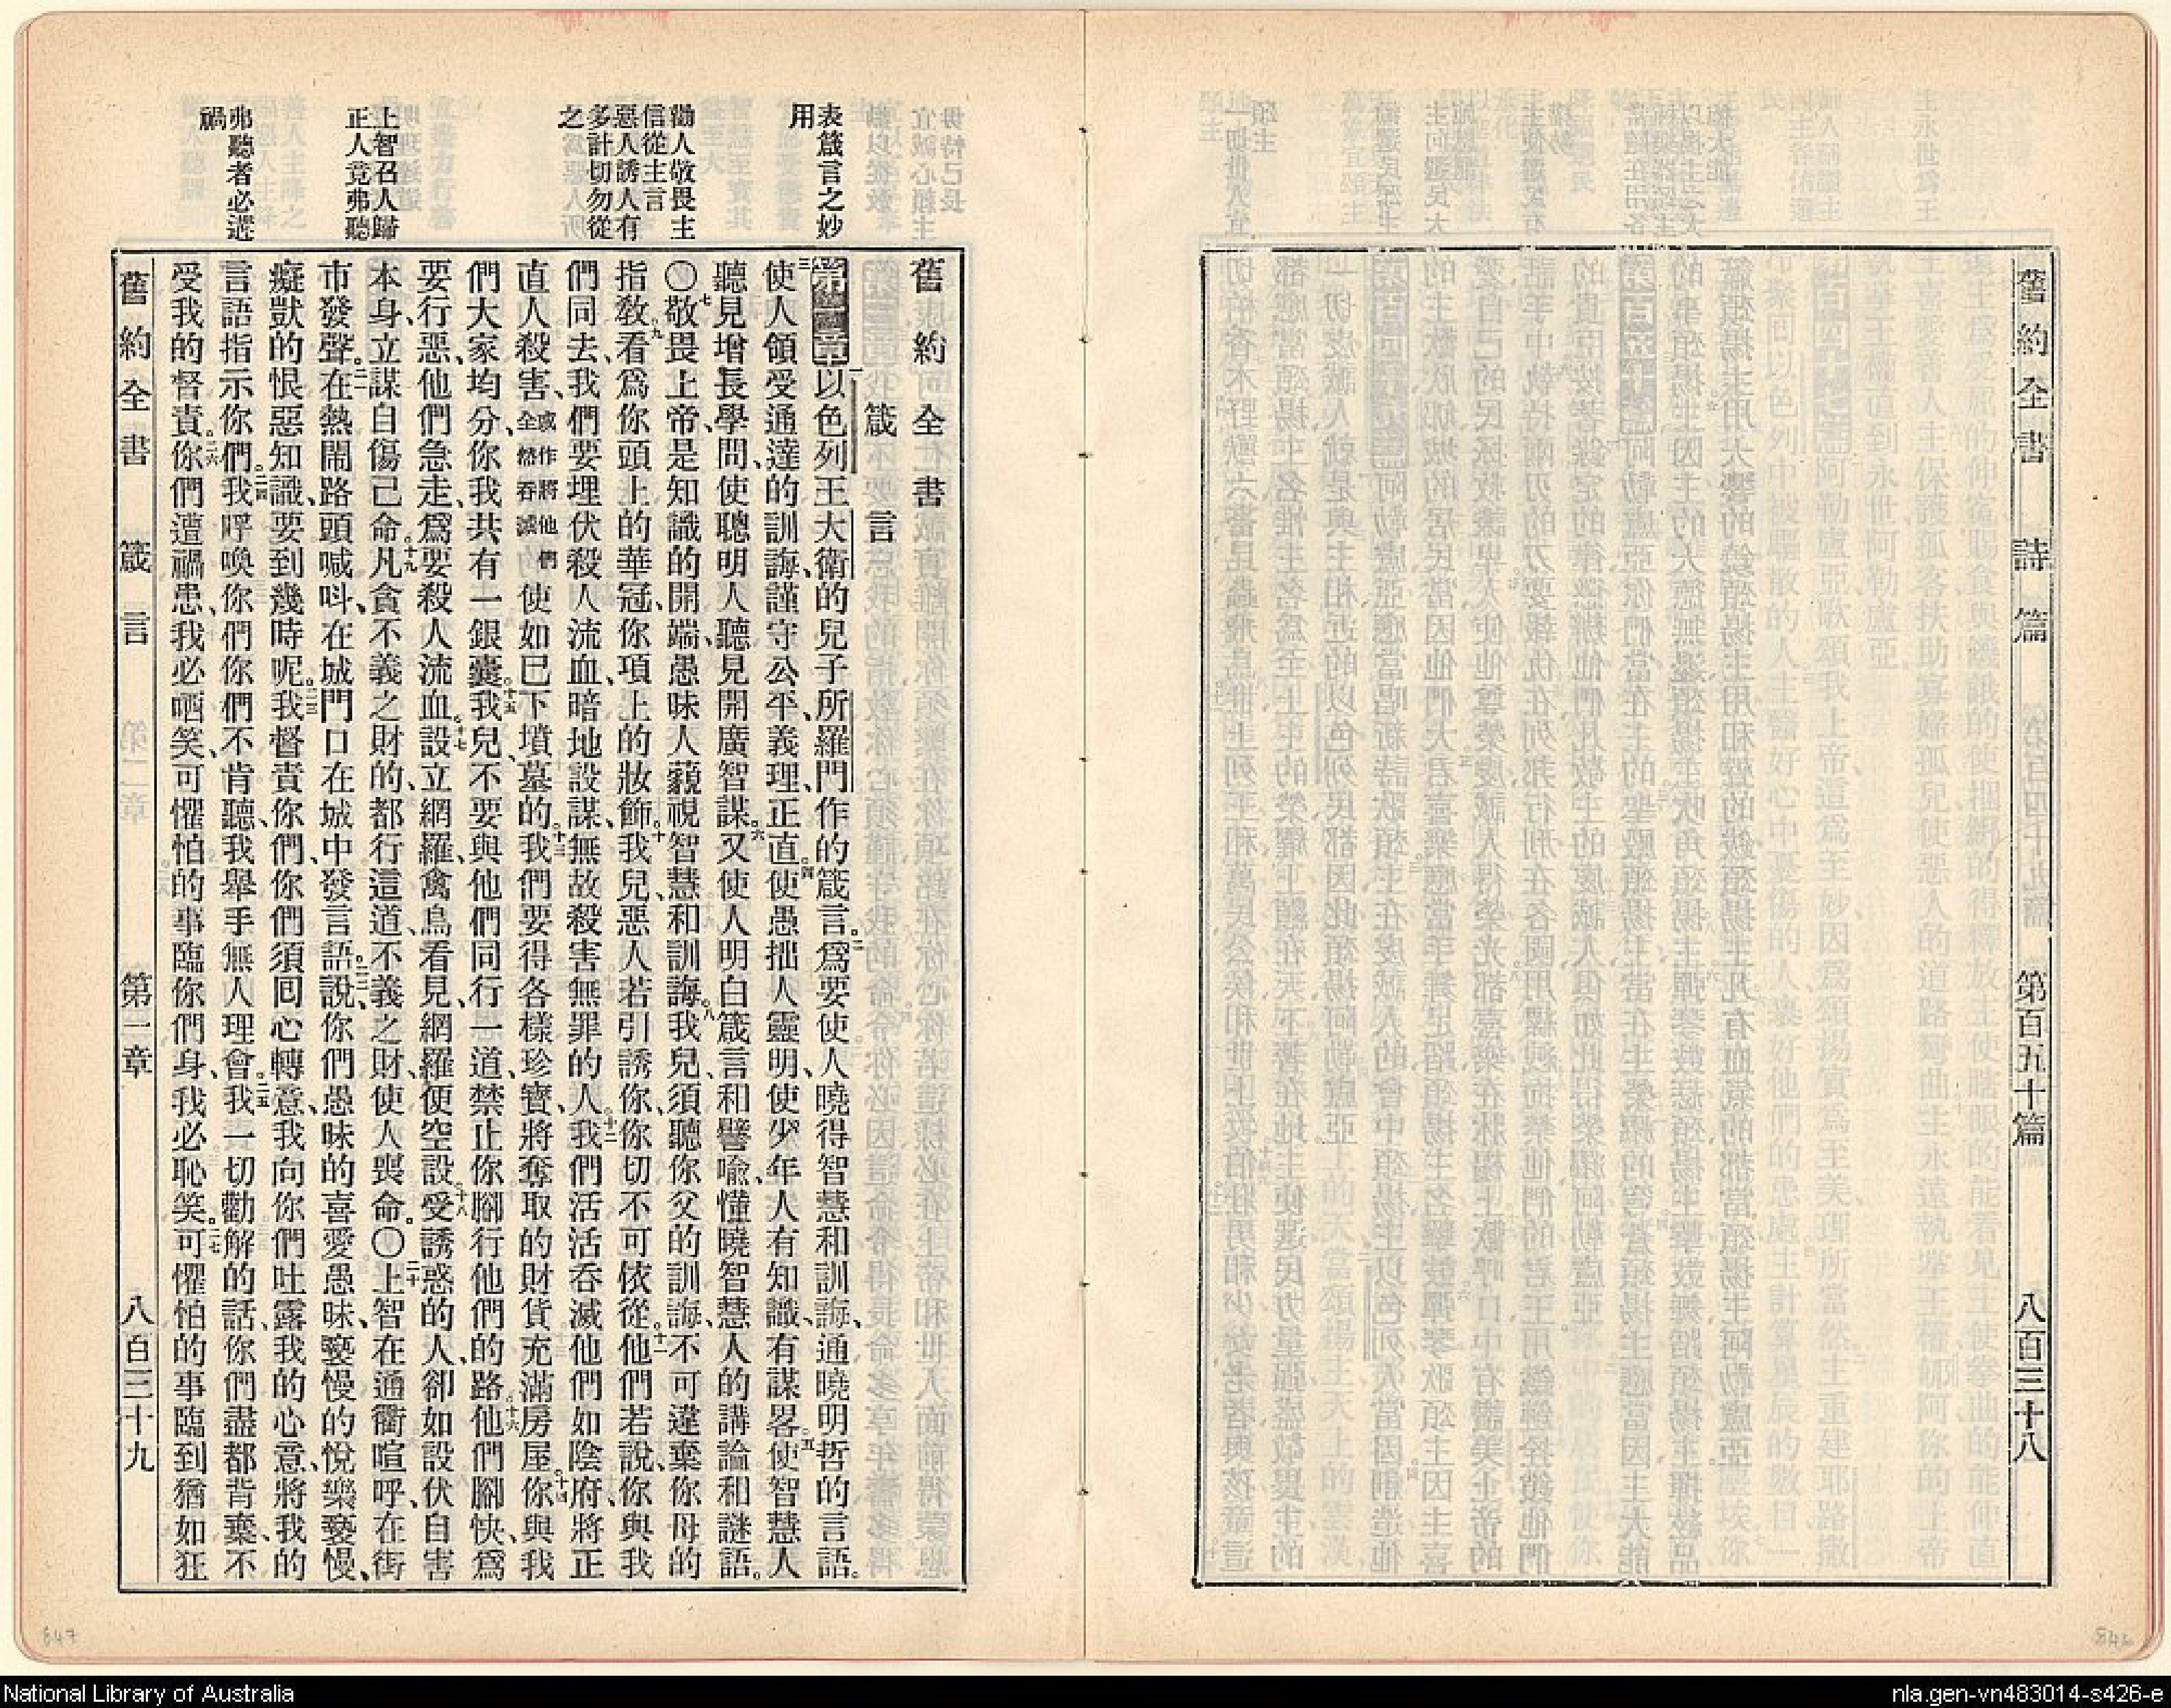 舊約全書　詩篇　第百五十篇　八百三十八
表箴言之妙
用
勸人敬畏主
信從主言
惡人誘人有
多計切勿從
之
上智召人歸
正人竟弗聽
弗聽者必遭
禍
舊約全書
箴言
第一章一以色列王大衛的兒子所羅門作的箴言。二爲要使人曉得智慧和訓誨、通曉明哲的言語。
三使人領受通達的訓誨、謹守公平、義理、正直。四使愚拙人靈明、使少年人有知識、有謀畧。五使智慧人
聽見增長學問、使聰明人聽見開廣智謀。六又使人明白箴言和譬喩、懂曉智慧人的講論和謎語。
〇七敬畏上帝、是知識的開端、愚昧人藐視智慧和訓誨。八我兒、須聽你父的訓誨、不可違棄你母的
指敎。九看爲你頭上的華冠、你項上的妝飾。十我兒、惡人若引誘你、你切不可依從。十一他們若說、你與我
們同去、我們要埋伏殺人流血、暗地設謀、無故殺害無罪的人。十二我們活活吞滅他們如陰府、將正
直人殺害、或作將他們全然吞滅使如已下墳墓的。十三我們要得各樣珍寶、將奪取的財貨充滿房屋。十四你與我
們大家均分、你我共有一銀囊。十五我兒、不要與他們同行一道、禁止你腳行他們的路。十六他們腳快、爲
要行惡、他們急走、爲要殺人流血。十七設立網羅、禽鳥看見、網羅便空設。十八受誘惑的人、卻如設伏自害
本身、立謀自傷己命。十九凡貪不義之財的、都行這道、不義之財、使人喪命。〇二十上智在通衢喧呼、在街
市發聲。二一在熱鬧路頭喊呌、在城門口在城中發言語。二二說、你們愚昧的喜愛愚昧、褻慢的悅樂褻慢、
癡獃的恨惡知識、要到幾時呢。二三我督責你們、你們須回心轉意、我向你們吐露我的心意、將我的
言語指示你們。二四我呼喚你們、你們不肯聽、我舉手無人理會。二五我一切勸解的話、你們盡都背棄、不
受我的督責。二六你們遭禍患、我必哂笑、可懼怕的事臨你們身、我必恥笑。二七可懼怕的事臨到猶如狂
舊約全書　箴言　第一章　八百三十九
647
646
National Library of Australia
nla.gen-vn483014-s426-e